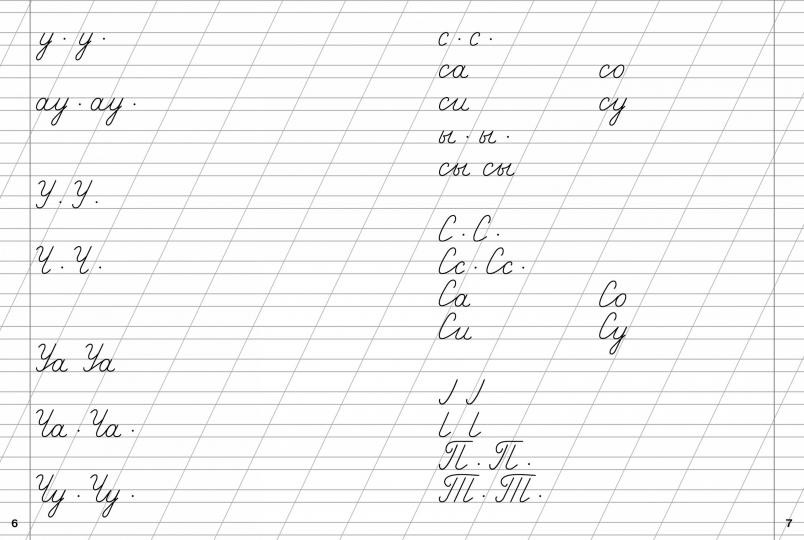 у · у ·
ау · ау ·
У . У .
Ч . Ч .
Уа Уа
Ча . Ча .
Чу . Чу .
6
с · с ·
са со
си су
ы · ы ·
сы сы
С · С ·
Сс · Сс ·
Са Со
Си Су
П . П .
Т . Т .
7